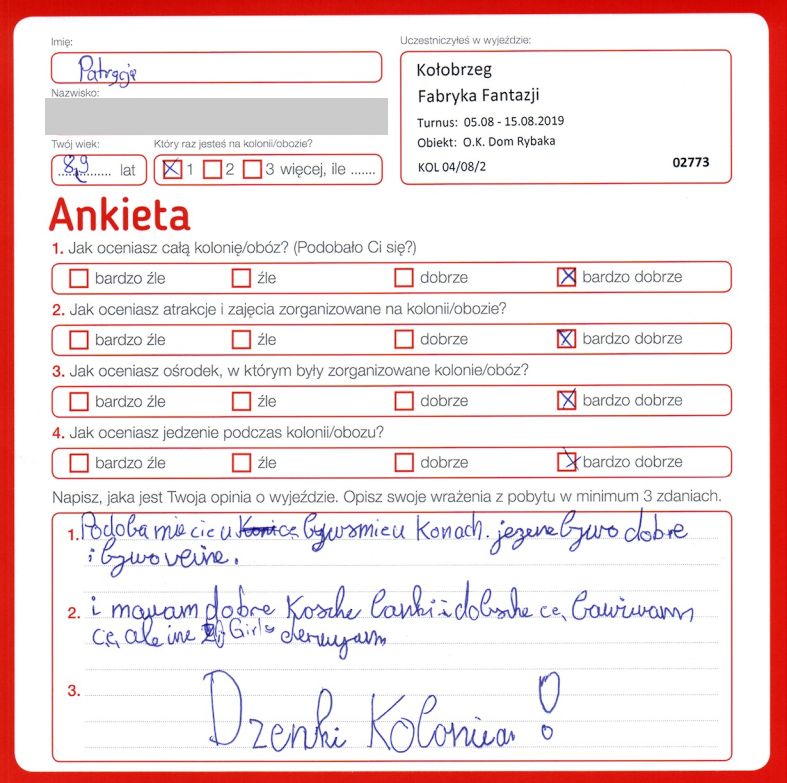 Imię:
Uczestniczyłeś w wyjeździe:
Patrycja
Kołobrzeg
Fabryka Fantazji
Nazwisko:
Turnus: 05.08 - 15.08.2019
Obiekt: O.K. Dom Rybaka
KOL 04/08/2 02773
Twój wiek: Który raz jesteś na kolonii/obozie?
8,9 lat 1 2 3 więcej, ile .......
Ankieta
1. Jak oceniasz całą kolonię/obóz? (Podobało Ci się?)
bardzo źle źle dobrze bardzo dobrze
2. Jak oceniasz atrakcje i zajęcia zorganizowane na kolonii/obozie?
bardzo źle źle dobrze bardzo dobrze
3. Jak oceniasz ośrodek, w którym były zorganizowane kolonie/obóz?
bardzo źle źle dobrze bardzo dobrze
4. Jak oceniasz jedzenie podczas kolonii/obozu?
bardzo źle źle dobrze bardzo dobrze
Napisz, jaka jest Twoja opinia o wyjeździe. Opisz swoje wrażenia z pobytu w minimum 3 zdaniach.
1. Podoba mie cie u Konach. jezene bywo dobre
i bywo vejne.
2. i mawam dobre Kosche i dobshe ce, bawiwam
ce, ale ine Girls
3. Dzenki Kolonia!